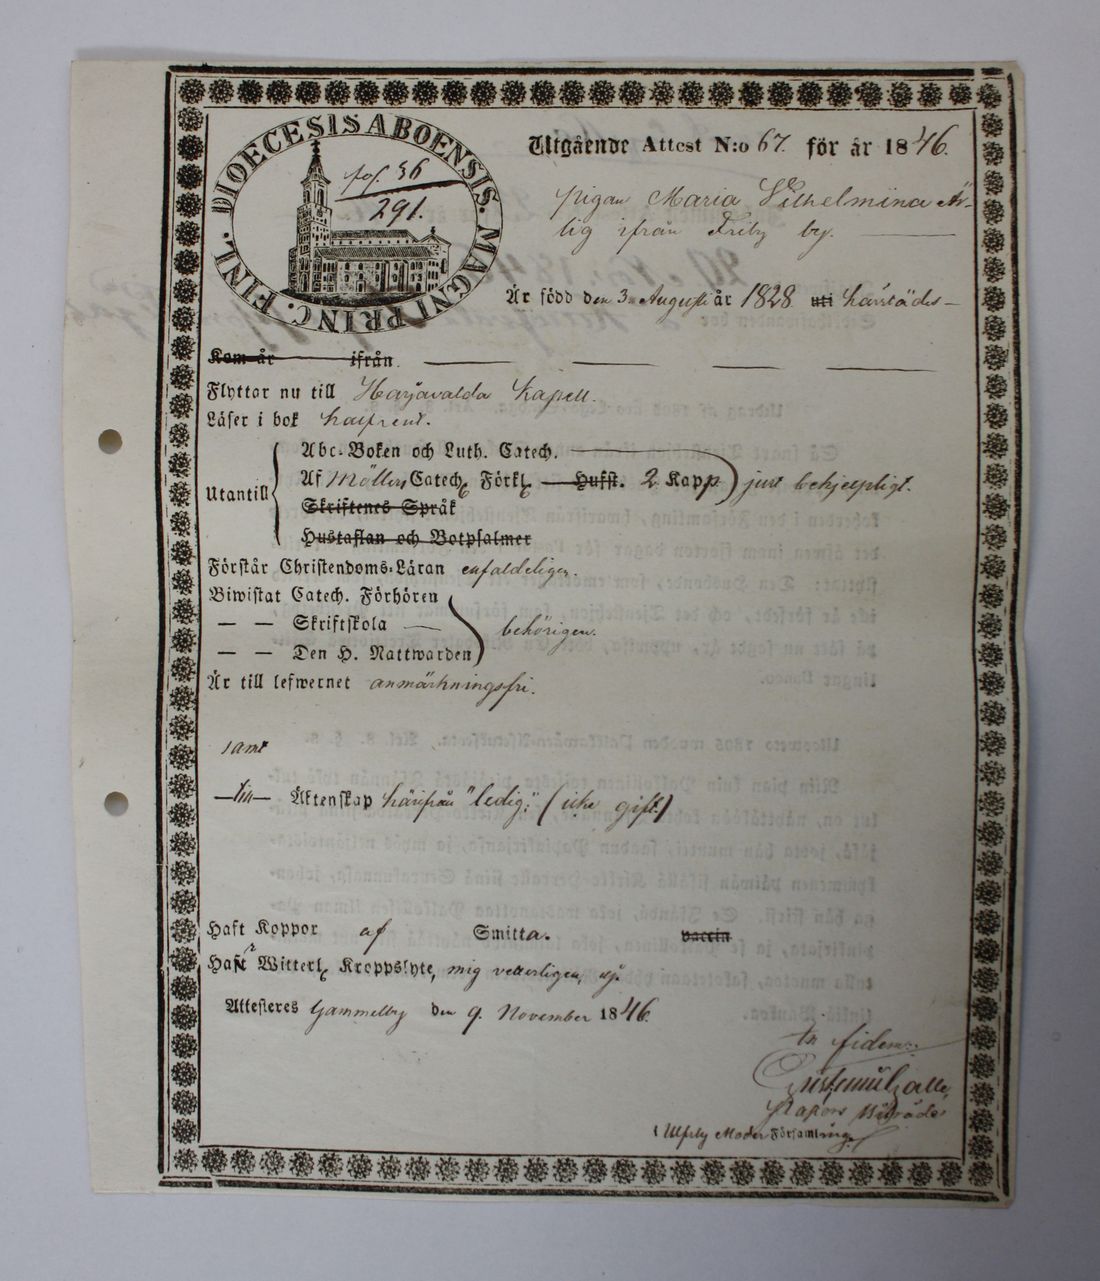 DIOECESIS ABOENSIS. MAGNI PRINC. FINL.
fol. 36
291.
Utgående Attest N:o 67 för år 1846.
pigan Maria Vilhelmina Är-
lig ifrån Friby by.
Är född den 3 Augusti år 1828 uti härstädes
Kom år ifrån
Flyttar nu till Harjavalda Kapell.
Läser i bok
Utantill
Abc-Boken och Luth. Catech.
Af Möllers Catech. Förkl. Husst. 2 Kapp just behjelpligt.
Skriftenes Språk
Hustaflan och Botpsalmer
Förstår Christendoms-Läran enfaldeligen.
Biwistat Catech. Förhören
— — Skriftskola —
— — Den H. Nattwarden
behörigen.
Är till lefwernet anmärkningsfri.
samt
till Äktenskap härifrån "ledig" (icke gift)
Haft Koppor af Smitta. vaccin
Haft Witterl. Kroppslyte, mig vetterligen, ej.
Attesteres Gammelby den 9. November 1846.
In fidem
Ulfsby Moder Församling